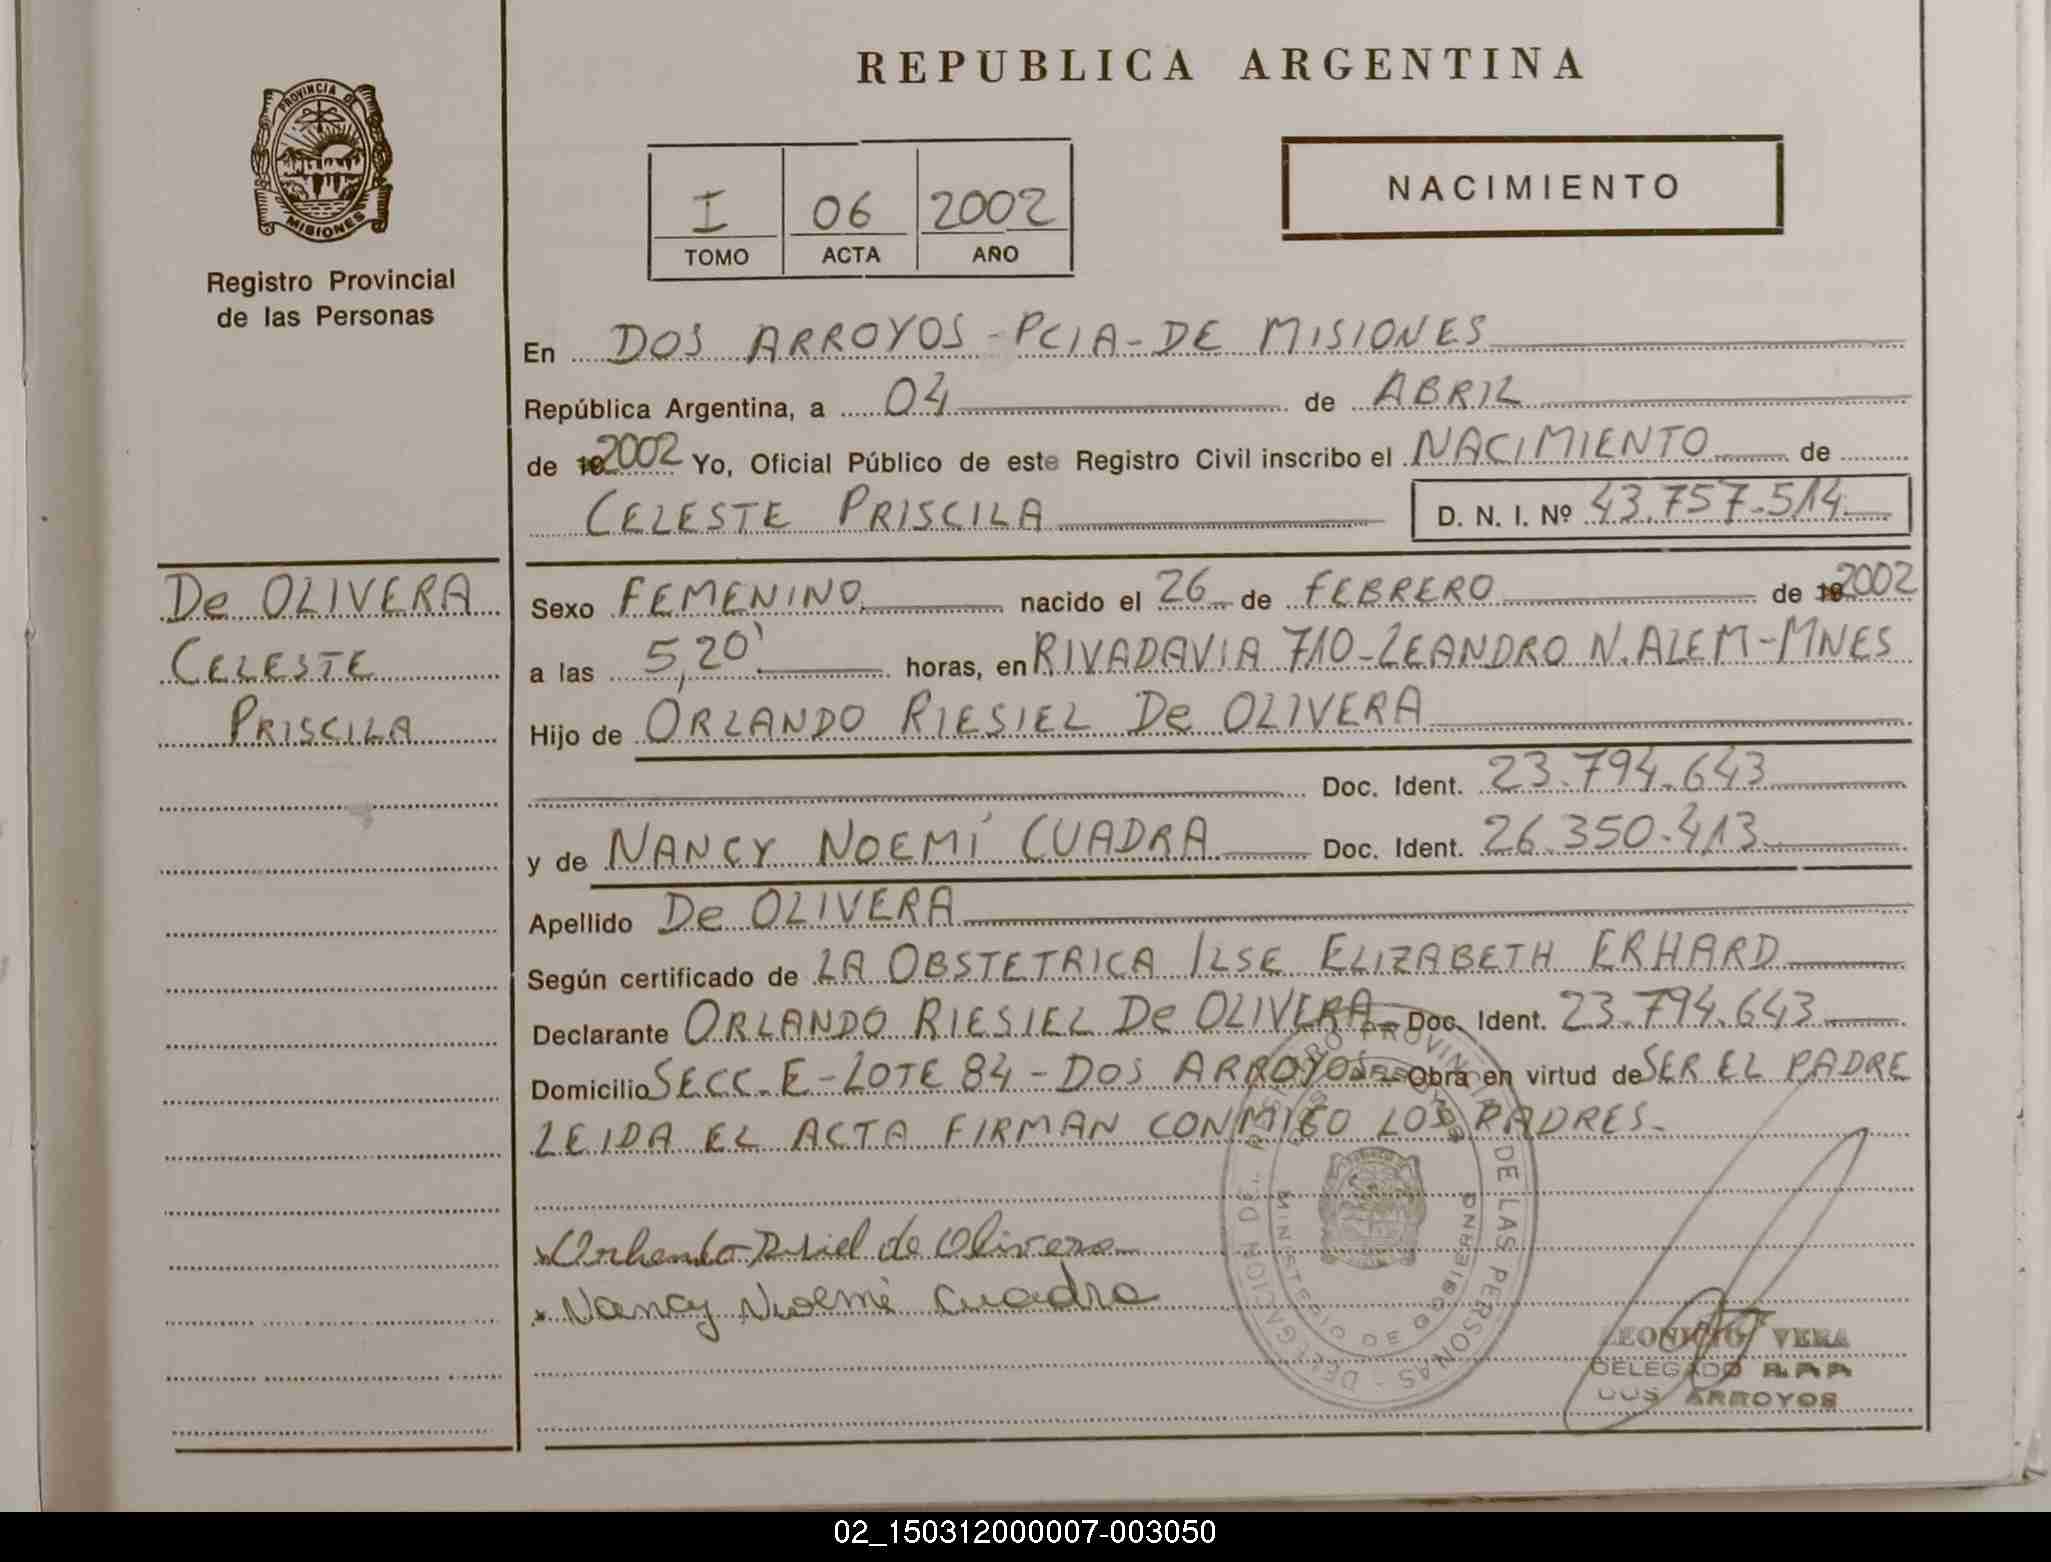 REPUBLICA ARGENTINA
PROVINCIA DE
MISIONES
Registro Provincial
de las Personas
NACIMIENTO
I 06 2002
TOMO ACTA AÑO
En DOS ARROYOS-PCIA-DE MISIONES
República Argentina, a 04 de ABRIL
de 192002 Yo, Oficial Público de este Registro Civil inscribo el NACIMIENTO de
CELESTE PRISCILA D. N. I. Nº 43.757.514
De OLIVERA
CELESTE
PRISCILA
Sexo FEMENINO nacido el 26 de FEBRERO de 192002
a las 5,20' horas, en RIVADAVIA 710-LEANDRO N. ALEM-MNES
Hijo de ORLANDO RIESIEL De OLIVERA
Doc. Ident. 23.794.643
y de NANCY NOEMÍ CUADRA Doc. Ident. 26.350.413
Apellido De OLIVERA
Según certificado de LA OBSTETRICA ILSE ELIZABETH ERHARD
Declarante ORLANDO RIESIEL De OLIVERA Doc. Ident. 23.794.643
Domicilio SECC. E-LOTE 84-DOS ARROYOS- Obra en virtud de SER EL PADRE
LEIDA EL ACTA FIRMAN CONMIGO LOS PADRES.
REGISTRO PROVINCIAL DE LAS PERSONAS - DELEGACION DE
MINISTERIO DE GOBIERNO
x de Olivera
x Nancy Noemí Cuadra
LEONICIO VERA
DELEGADO
DOS ARROYOS
02_150312000007-003050